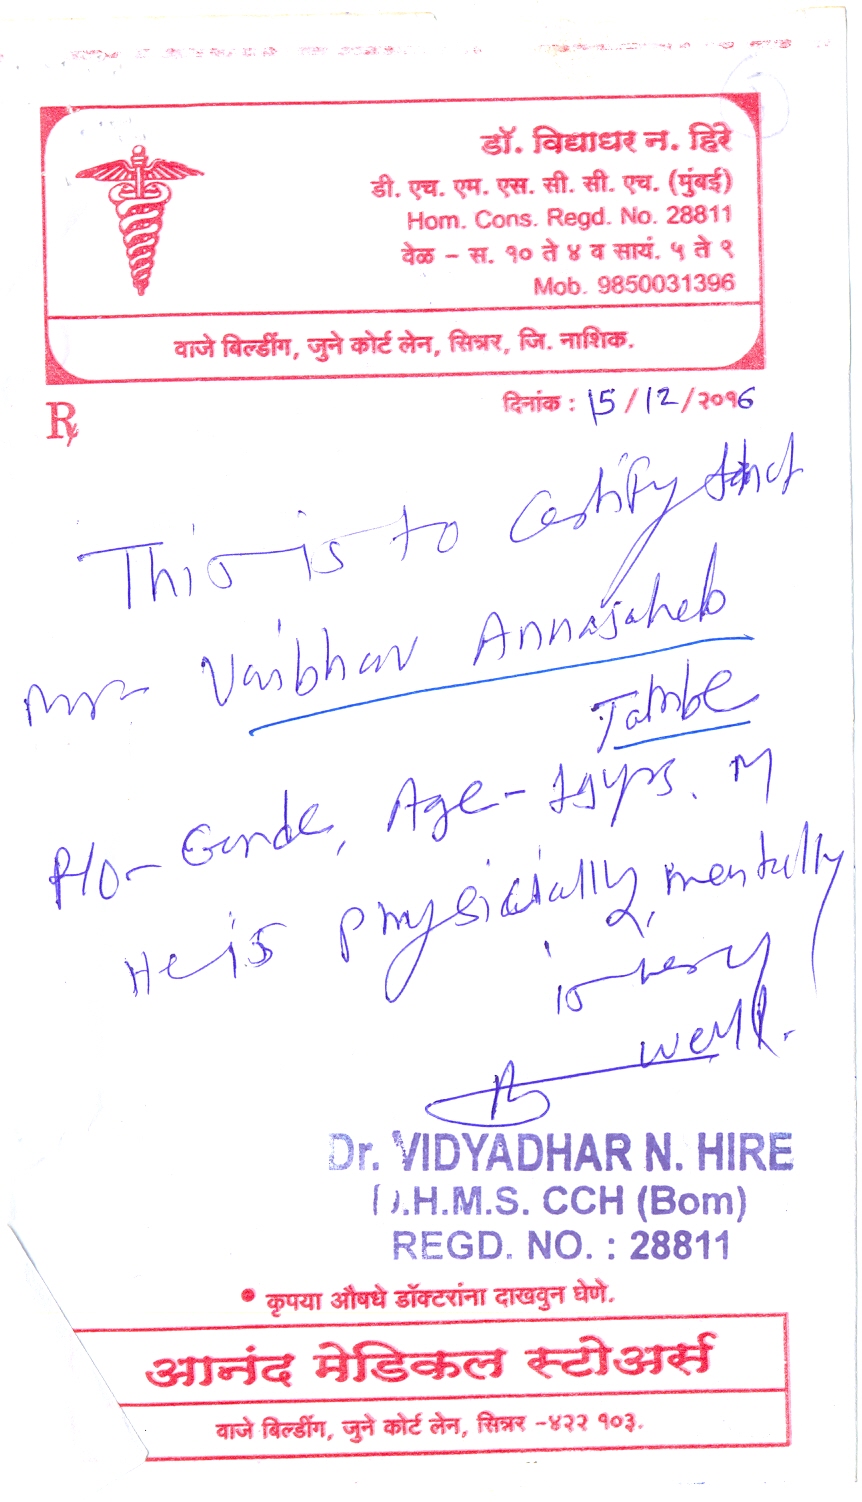 डॉ. विद्याधर न. हिरे
डी. एच. एम. एस. सी. सी. एच. (मुंबई)
Hom. Cons. Regd. No. 28811
वेळ – स. १० ते ४ व सायं. ५ ते ९
Mob. 9850031396
वाजे बिल्डींग, जुने कोर्ट लेन, सिन्नर, जि. नाशिक.
दिनांक : 15/12/२०१6
This is to Certify that
Vaibhav Annasaheb
Tambe
Age- yrs. M
He is physicially, mentally
is very
well.
Dr. VIDYADHAR N. HIRE
D.H.M.S. CCH (Bom)
REGD. NO. : 28811
• कृपया औषधे डॉक्टरांना दाखवुन घेणे.
आनंद मेडिकल स्टोअर्स
वाजे बिल्डींग, जुने कोर्ट लेन, सिन्नर -४२२ १०३.